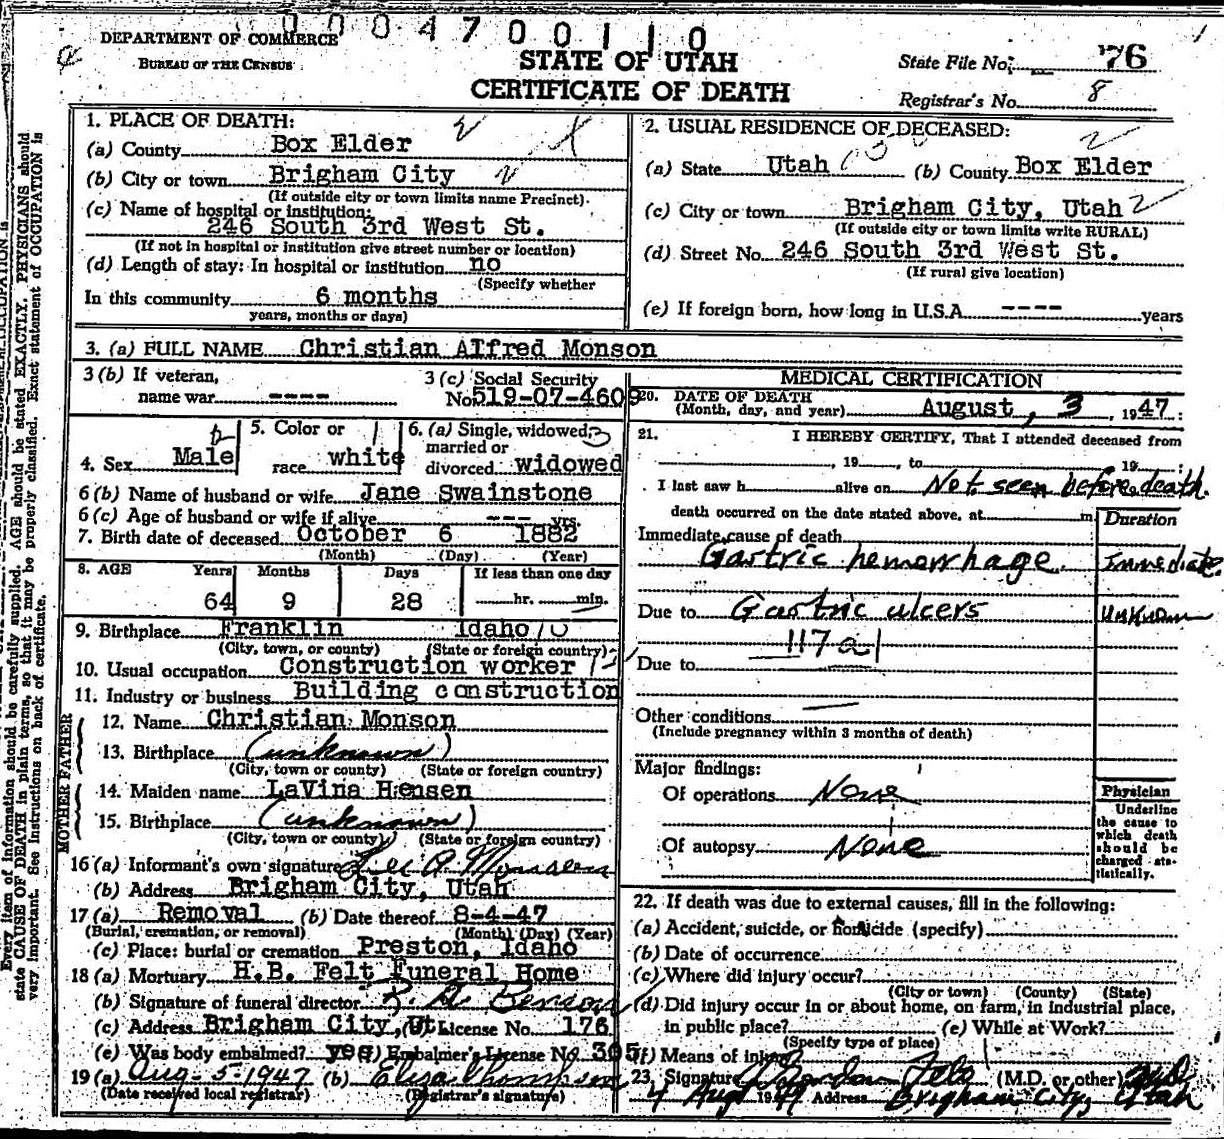 0004700110
DEPARTMENT OF COMMERCE
BUREAU OF THE CENSUS
STATE OF UTAH
CERTIFICATE OF DEATH
State File No. 76
Registrar's No. 8
1. PLACE OF DEATH:
(a) County Box Elder
(b) City or town Brigham City
(If outside city or town limits name Precinct).
(c) Name of hospital or institution:
246 South 3rd West St.
(If not in hospital or institution give street number or location)
(d) Length of stay: In hospital or institution no
(Specify whether
In this community 6 months
years, months or days)
2. USUAL RESIDENCE OF DECEASED:
(a) State Utah (b) County Box Elder
(c) City or town Brigham City, Utah
(If outside city or town limits write RURAL)
(d) Street No. 246 South 3rd West St.
(If rural give location)
(e) If foreign born, how long in U.S.A. ---- years
3. (a) FULL NAME Christian Alfred Monson
3 (b) If veteran,
name war ----
3 (c) Social Security
No. 519-07-4609
4. Sex Male
5. Color or
race white
6. (a) Single, widowed,
married or
divorced widowed
6 (b) Name of husband or wife Jane Swainstone
6 (c) Age of husband or wife if alive --- yrs.
7. Birth date of deceased October 6 1882
(Month) (Day) (Year)
8. AGE Years Months Days If less than one day
64 9 28 hr. min.
9. Birthplace Franklin Idaho
(City, town, or county) (State or foreign country)
10. Usual occupation Construction worker
11. Industry or business Building construction
FATHER
12. Name Christian Monson
13. Birthplace (unknown)
(City, town or county) (State or foreign country)
MOTHER
14. Maiden name LaVina Hensen
15. Birthplace (unknown)
(City, town or county) (State or foreign country)
16 (a) Informant's own signature Lee A. Monson
(b) Address Brigham City, Utah
17 (a) Removal (b) Date thereof 8-4-47
(Burial, cremation, or removal) (Month) (Day) (Year)
(c) Place: burial or cremation Preston, Idaho
18 (a) Mortuary H.B. Felt Funeral Home
(b) Signature of funeral director R. A. Benson
(c) Address Brigham City, Ut. License No. 176
(e) Was body embalmed? yes (f) Embalmer's License No. 305
19 (a) Aug-5-1947 (b) Eliza Thompson
(Date received local registrar) (Registrar's signature)
MEDICAL CERTIFICATION
20. DATE OF DEATH
(Month, day, and year) August, 3, 1947
21. I HEREBY CERTIFY, That I attended deceased from
, 19 , to 19 ;
I last saw h alive on Not seen before death.
death occurred on the date stated above, at m. Duration
Immediate cause of death
Gastric hemorrhage. Immediate.
Due to Gastric ulcers Unknown
117a1
Due to
Other conditions
(Include pregnancy within 3 months of death)
Major findings:
Of operations None
Of autopsy None
Physician
Underline
the cause to
which death
should be
charged sta-
tistically.
22. If death was due to external causes, fill in the following:
(a) Accident, suicide, or homicide (specify)
(b) Date of occurrence
(c) Where did injury occur?
(City or town) (County) (State)
(d) Did injury occur in or about home, on farm, in industrial place,
in public place? (e) While at Work?
(Specify type of place)
(f) Means of injury
23. Signature Felt (M.D. or other) M.D.
4 Aug 1947 Address Brigham City, Utah
Every item of information should be carefully supplied. AGE should be stated EXACTLY. PHYSICIANS should
state CAUSE OF DEATH in plain terms, so that it may be properly classified. Exact statement of OCCUPATION is
very important. See instructions on back of certificate.